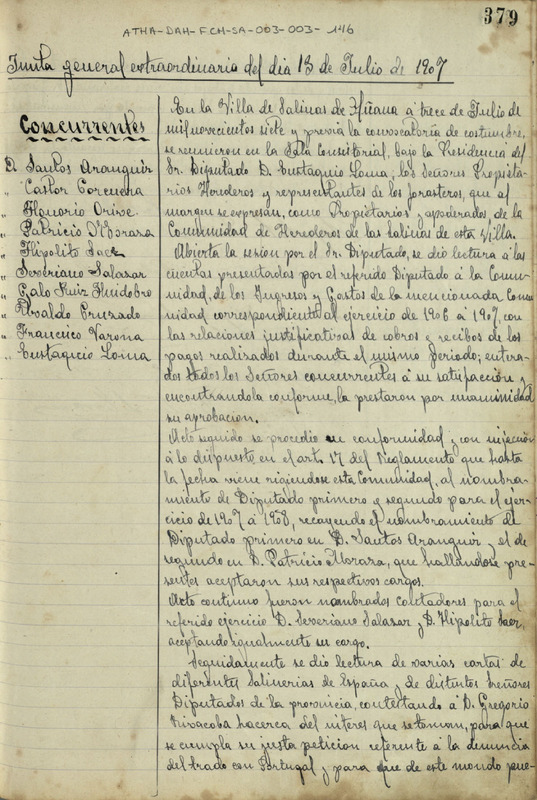 379
ATHA-DAH-FCM-SA-003-003-146
Junta general extraordinaria del dia 13 de Julio de 1907
Concurrentes
D. Santos Aranguiz
" Castor Corcuera
" Honorio Orive
" Patricio Moraza
" Hipolito Saez
" Severiano Salazar
" Galo Ruiz Huidobro
" Oswaldo Cruzado
" Francisco Varona
" Eustaquio Loma
En la Villa de Salinas de Añana á trece de Julio de
mil novecientos siete y previa la convocatoria de costumbre,
se reunieron en la Sala Consistorial, bajo la Presidencia del
Sr. Diputado D. Eustaquio Loma, los Señores Propieta-
rios Herederos y representantes de los forasteros, que al
margen se expresan, como Propietarios y apoderados, de la
Comunidad de Herederos de las Salinas de esta Villa.
Abierta la sesion por el Sr. Diputado, se dió lectura á las
cuentas presentadas por el referido Diputado á la Comu-
nidad, de los Ingresos y Gastos de la mencionada Comu
nidad correspondiente al ejercicio de 1906 á 1907, con
las relaciones justificativas de cobros y recibos de los
pagos realizados durante el mismo periodo; entera-
dos todos los Señores concurrentes á su satisfacción y
encontrandola conforme, la prestaron por unanimidad
su aprobacion.
Acto seguido se procedió en conformidad y con sujeción
á lo dispuesto en el art. 17 del Reglamento que hasta
la fecha viene rigiendose esta Comunidad, al nombra-
miento de Diputado primero y segundo para el ejer-
cicio de 1907 á 1908, recayendo el nombramiento de
Diputado primero en D. Santos Aranguiz y el de
segundo en D. Patricio Moraza, que hallandose pre-
sentes aceptaron sus respectivos cargos.
Acto continuo fueron nombrados contadores para el
referido ejercicio D. Severiano Salazar y D. Hipolito Saez,
aceptando igualmente su cargo.
Seguidamente se dio lectura de varias cartas de
diferentes Salinerias de España y de distintos Señores
Diputados de la provincia, contestando á D. Gregorio
Rivacoba hacerca del interes que se toman, para que
se cumpla su justa peticion referente á la denuncia
del trado con Portugal y para que de este mondo pue-